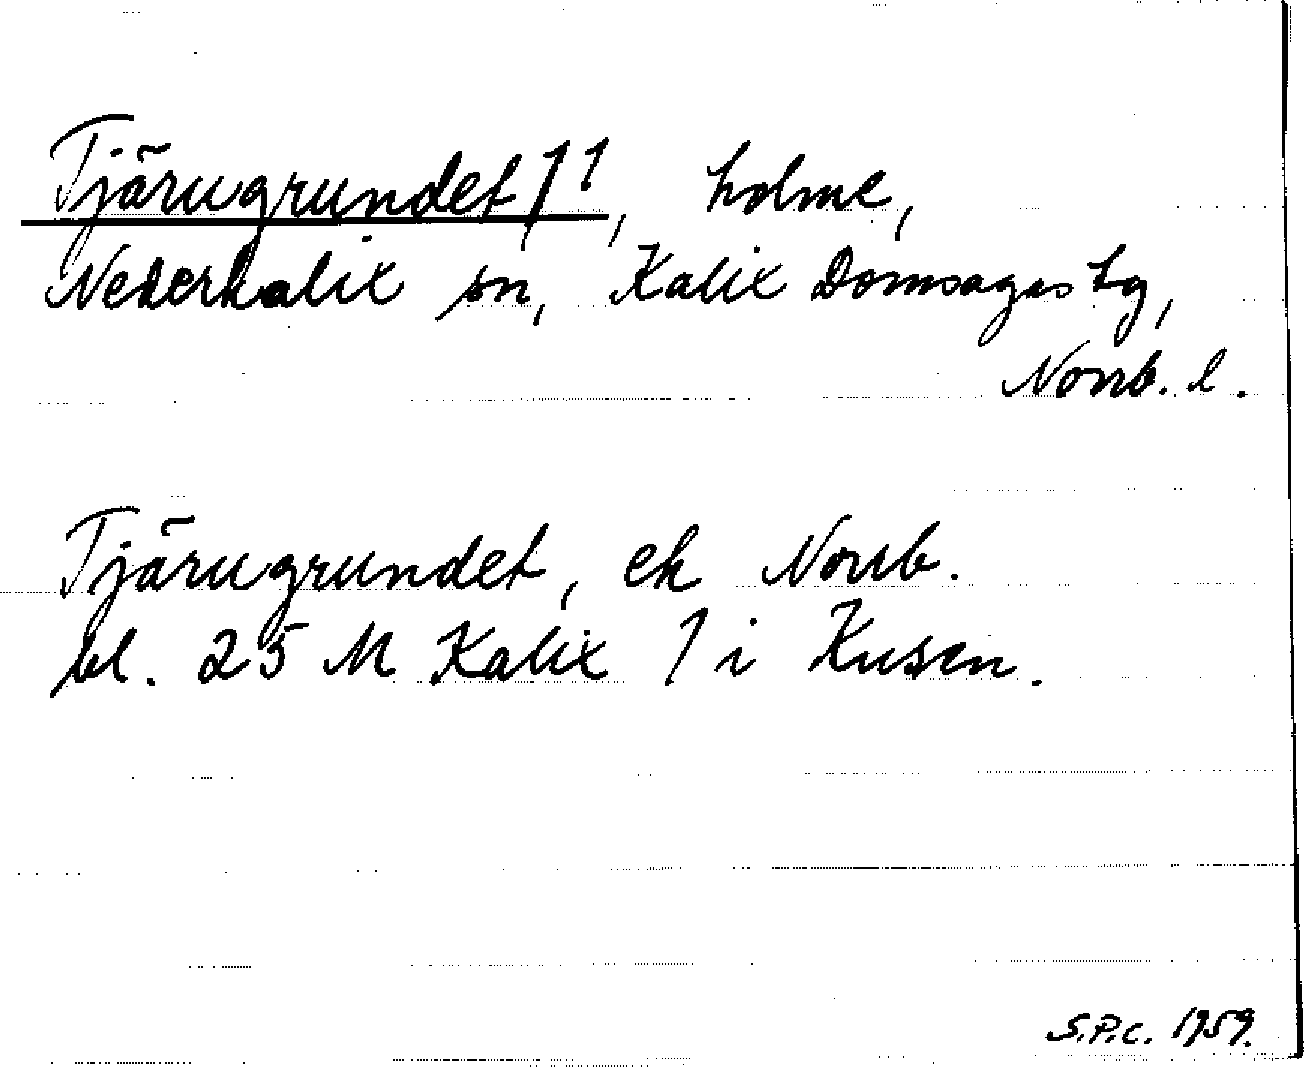 Tjärugrundet 11, holme,
Nederkalix sn, Kalix Domsagas tg,
Norrb. l.
Tjärugrundet, ek Norrb.
bl. 25 M Kalix 1 i Kusen.
S.P.c. 1959.